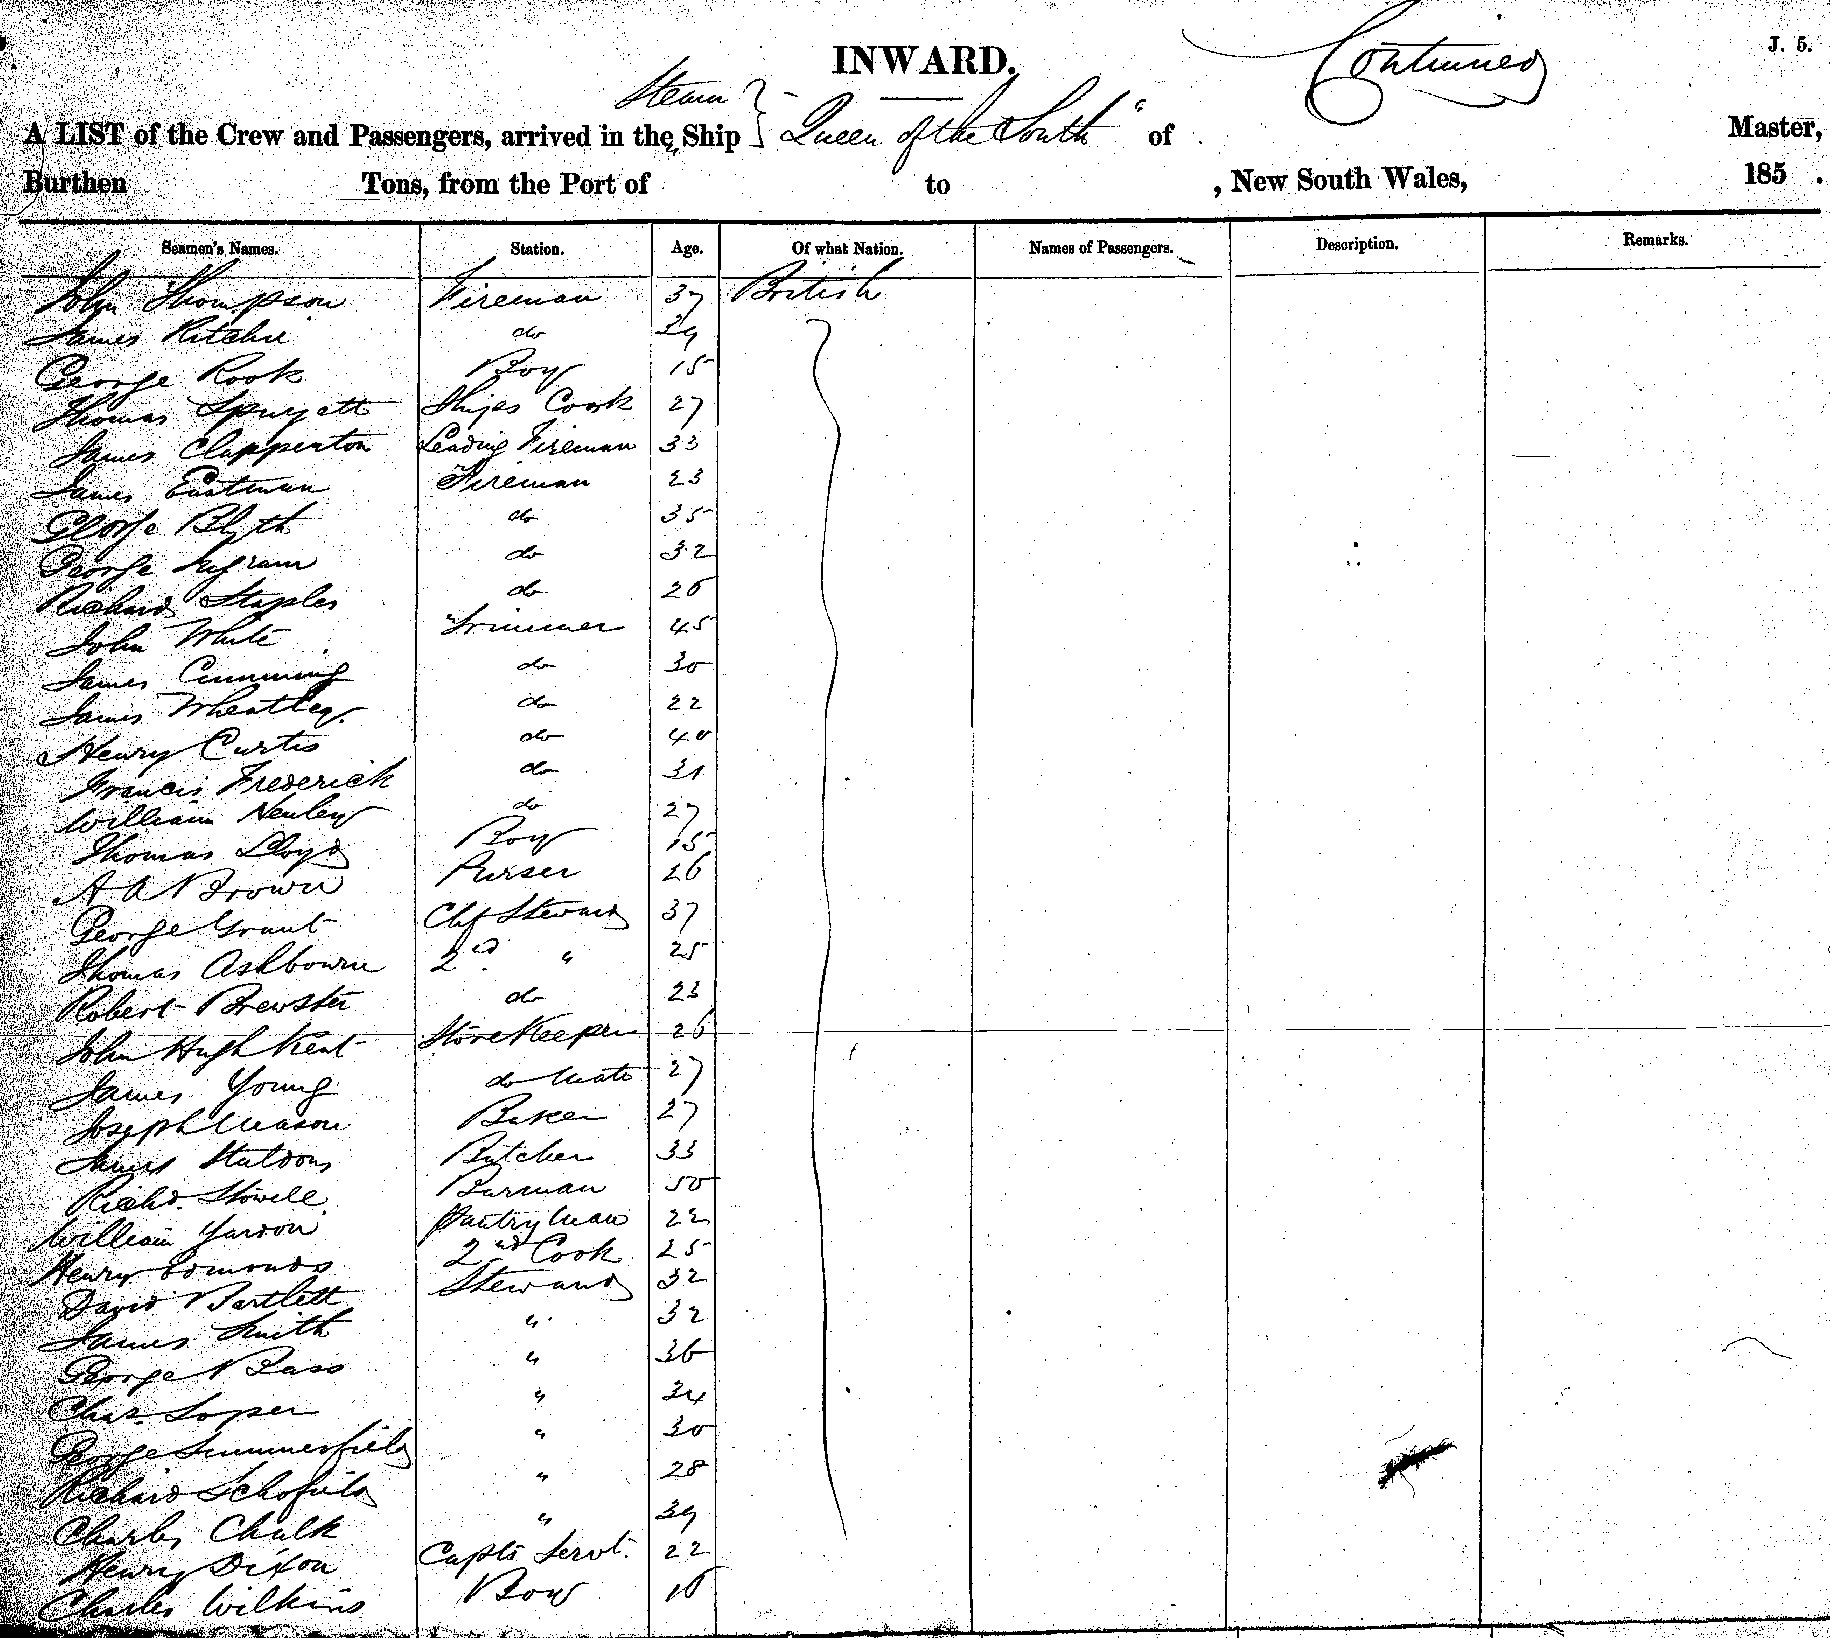 INWARD.
Continued
J. 5.
Steam
A LIST of the Crew and Passengers, arrived in the Ship "Queen of the South" of Master,
Burthen Tons, from the Port of to , New South Wales, 185 .
Seamen's Names. Station. Age. Of what Nation. Names of Passengers. Description. Remarks.
John Thompson Fireman 37 British
James Ritchie do 29
George Rook Boy 15
Thomas Spryett Ships Cook 27
James Clapperton Leading Fireman 33
James Eastman Fireman 23
George Blyth do 35
George Ingram do 32
Richard Staples do 26
John White Trimmer 45
James Cumming do 30
James Wheatley do 22
Henry Curtis do 40
Francis Frederick do 31
William Henley do 27
Thomas Lloyd Boy 15
A A Brown Purser 26
George Grant Chf Steward 37
Thomas Ashbourne 2nd " 25
Robert Brewster do 23
John Hugh Kent StoreKeeper 26
James Young do Mate 27
Joseph Meason Baker 27
James Butcher 33
Richd. Stowell Barman 50
William Pantryman 22
Henry Edmonds 2nd Cook 25
David Bartlett Steward 32
James Smith " 32
George Bass " 36
Chas. Soper " 34
George Summerfield " 30
Richard Schofield " 28
Charles Chalk " 39
Henry Dixon Capts Servt. 22
Charles Wilkins Boy 16